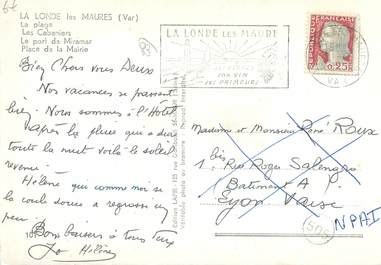 LA LONDE les MAURES (Var)
La plage
Les Cabaniers
Le port de Miramar
Place de la Mairie
Bien Chers vous Deux
Nos vacances se passent
bien. Nous sommes à l'Hôtel
Après la pluie qui a duré
toute la nuit voilà le soleil
revenu
Hélène qui comme moi se
la coule douce a regrossi un
peu.
Bons baisers à tous deux
Jo Hélène
10
LA LONDE LES MAURES
SON VIN
SES PRIMEURS
FRANÇAISE
0,25F
VAR
Madame et Monsieur René Roux
1 bis Rue Roger Salengro
Batiment A
Lyon Vaise
NPAI
505